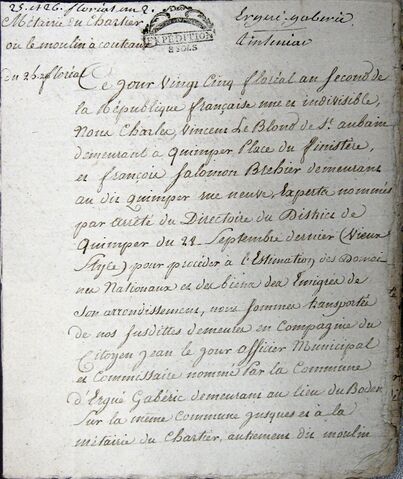 25. et 26. floréal an 2.
Métairie du Chartier
ou le moulin à couteaux
EXPEDITION
8 SOLS
Ergué-gabéric
Tinteniac
Du 25 floréal
Ce jour vingt cinq floréal an second de
la République française une et indivisible,
Nous Charles, Vincent Le Blond de St. aubain
demeurant à Quimper Place du finistère,
et françois Salomon Brehier demeurant
au dit Quimper rue neuve, Experts nommés
par arrêté du Directoire du District de
Quimper du 22 Septembre dernier (vieux
Style) pour procéder à l'Estimation des Domai-
nes Nationaux et des biens des Emigrés de
son arrondissement, nous sommes transportés
de nos susdittes demeures en Compagnie du
Citoyen jean le jour officier Municipal
et Commissaire nommé par la Commune
d'Ergué Gabéric demeurant au lieu du Boden
sur la même Commune jusques et à la
métairie du Chartier, autrement dit moulin